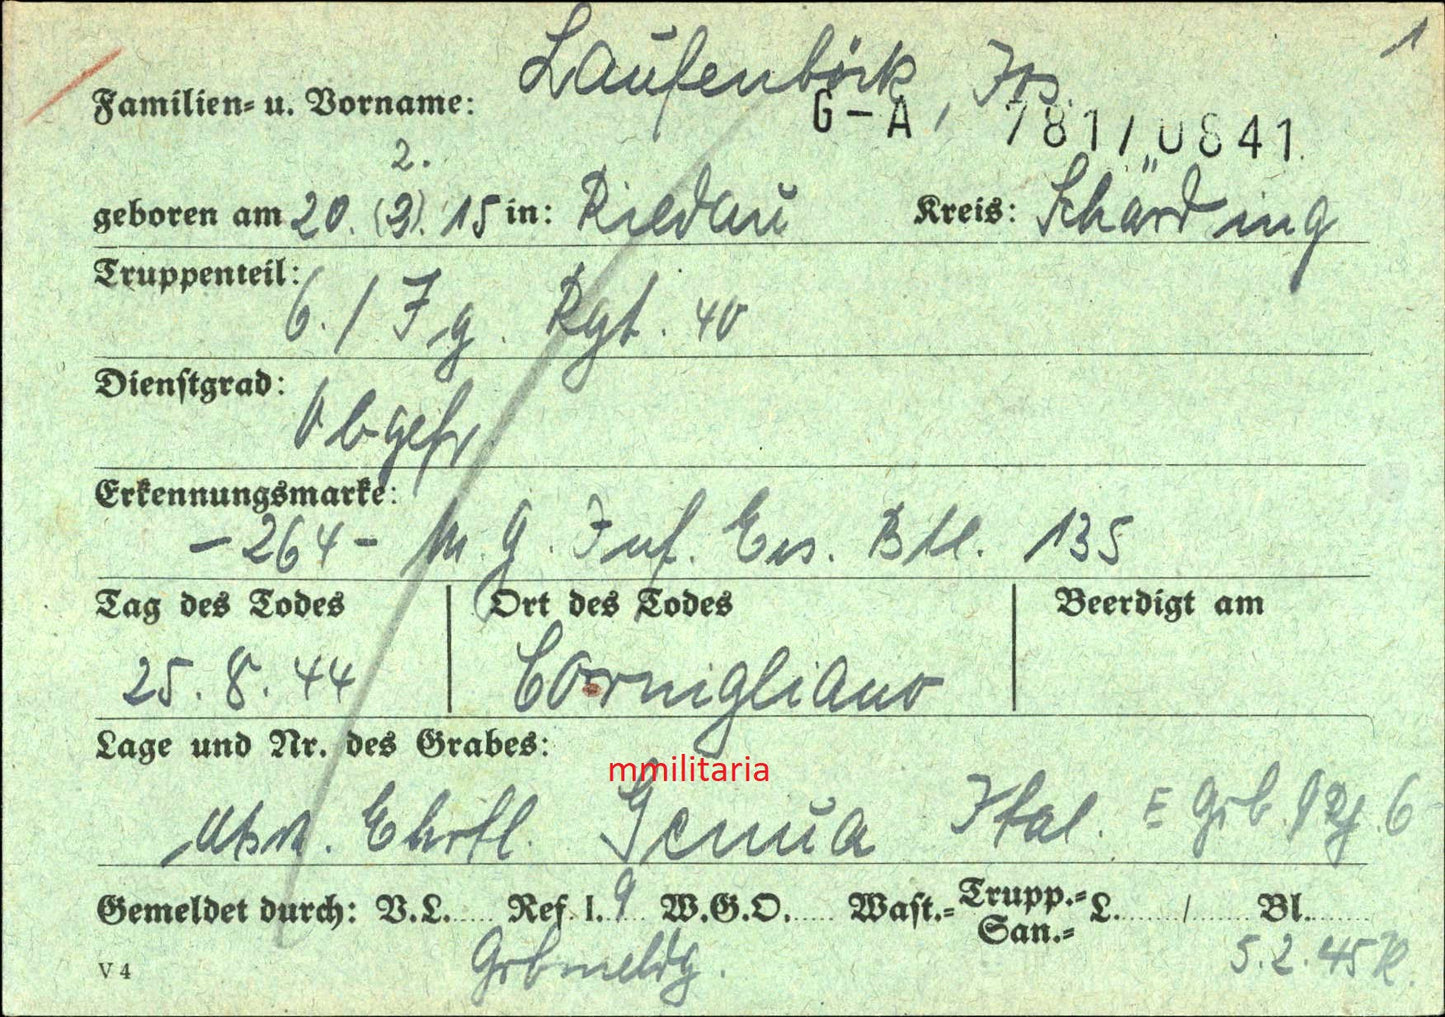 1
Familien- u. Vorname: Laufenböck, Jos.
G-A 781/0841
2.
geboren am 20. (3). 15 in: Riedau Kreis: Schärding
Truppenteil:
6. / Jg. Rgt. 40
Dienstgrad:
Obgefr.
Erkennungsmarke:
-264- M.G. Inf. Ers. Btl. 135
Tag des Todes Ort des Todes Beerdigt am
25. 8. 44 Cornigliano
Lage und Nr. des Grabes:
mmilitaria
Ehrfl. Genua Ital. E Grb. 6
Gemeldet durch: V.L. Ref. I. 9 W.G.O. Wast.- Trupp.- San.- L. / Bl.
Grbmeldg. 5.2.45
V 4